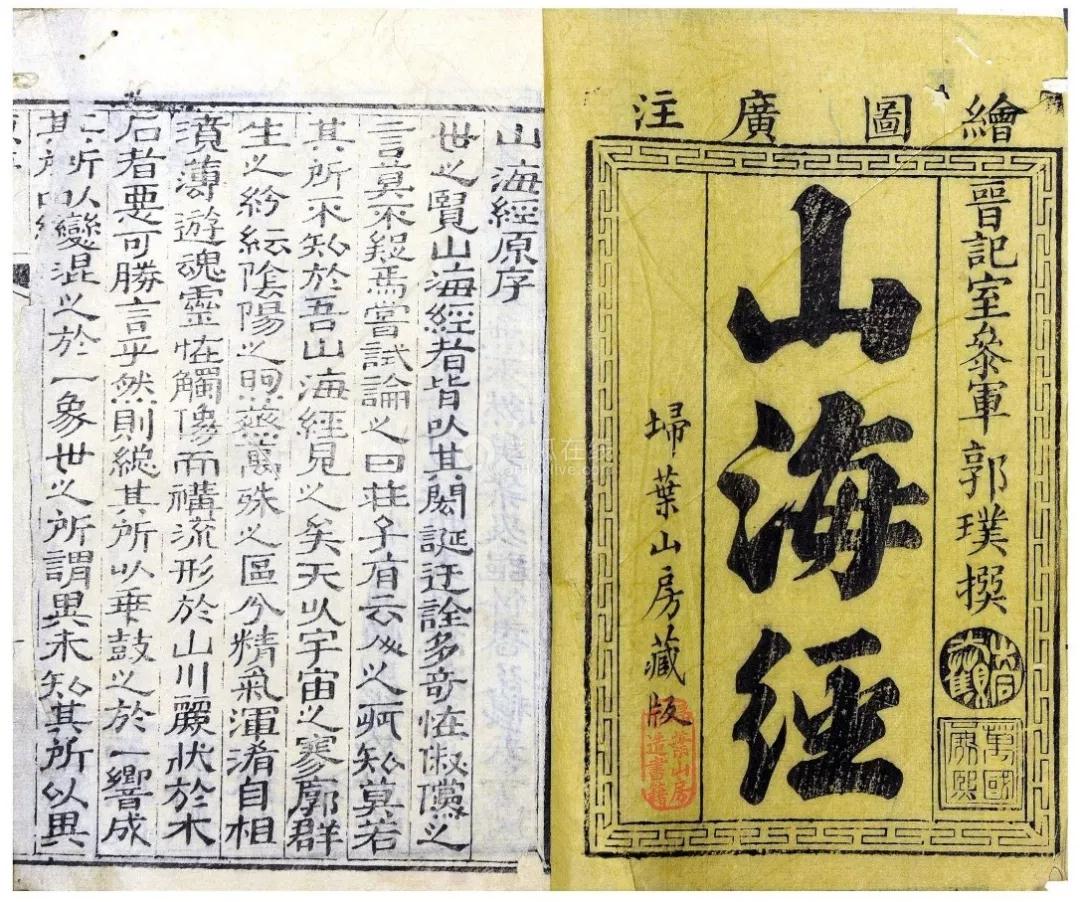 繪圖廣注
晉記室叅軍郭璞撰
山海經
埽葉山房藏版
葉山房
造書籍
萬國
山海經原序
世之賢山海經者皆以其閎誕迂詮多奇怪俶儻之
言莫不疑焉嘗試論之曰莊子有云人之所知莫若
其所不知於吾山海經見之矣夫以宇宙之寥廓群
生之紛紜陰陽之煦蒸萬殊之區分精氣渾淆自相
濆薄遊魂靈怪觸像而構流形於山川麗狀於木
石者惡可勝言乎然則總其所以乖鼓之於一響成
其所以變混之於一象世之所謂異未知其所以異